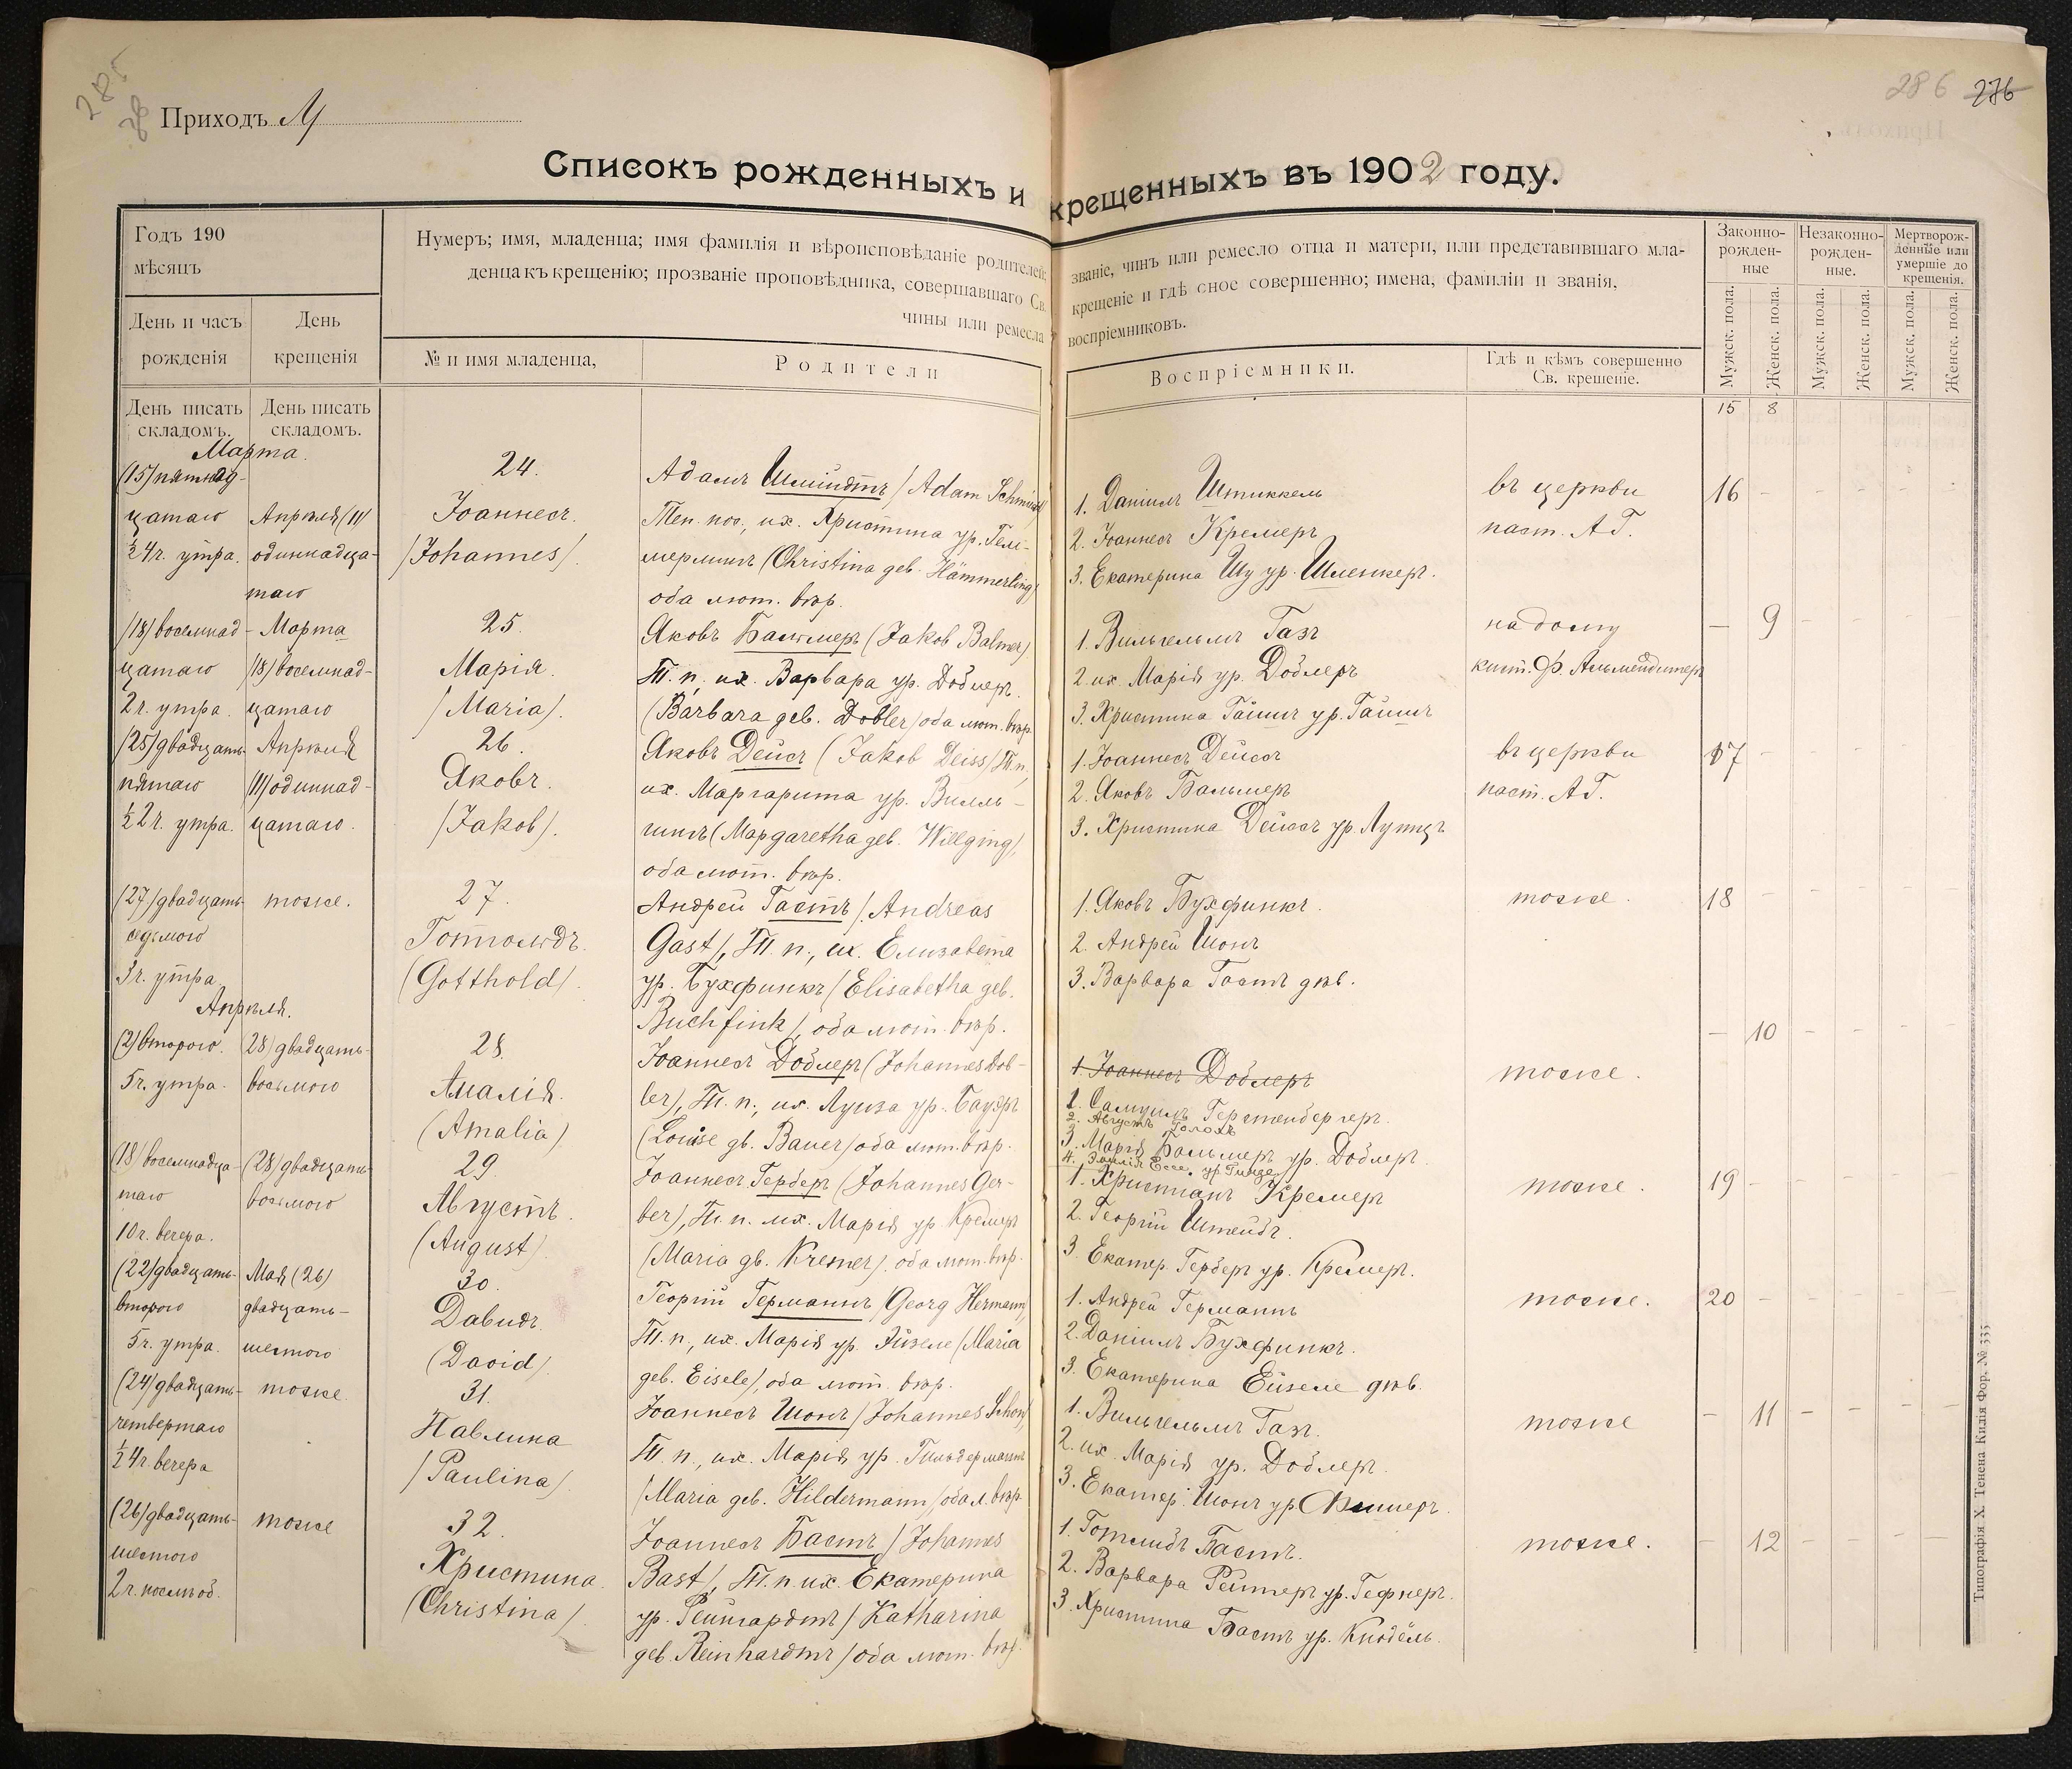 285
Приходъ
286 276
Списокъ рожденныхъ и крещенныхъ въ 1902 году.
Годъ 190
мѣсяцъ
День и часъ
рожденія
День
крещенія
Нумеръ; имя, младенца; имя фамилія и вѣроисповѣданіе родителей; званіе, чинъ или ремесло отца и матери, или представившаго мла-
денца къ крещенію; прозваніе проповѣдника, совершавшаго Св. крещеніе и гдѣ оное совершенно; имена, фамиліи и званія,
чины или ремесла воспріемниковъ.
№ и имя младенца,
Родители
Воспріемники.
Гдѣ и кѣмъ совершенно
Св. крешеніе.
Законно-
рожден-
ные
Незаконно-
рожден-
ные.
Мертворож-
денные или
умершіе до
крещенія.
Мужск. пола.
Женск. пола.
Мужск. пола.
Женск. пола.
Мужск. пола.
Женск. пола.
День писать
складомъ.
День писать
складомъ.
15 8
Марта.
(15) пятнад-
цатаго
½ 4 ч. утра.
Апрѣля (11)
одиннадца-
таго
24.
Іоаннесъ.
/Johannes/.
Адамъ Шмидтъ /Adam Schmidt/
Теп. пос., их. Христина ур. Гем-
мерлингъ (Christina geb. Hämmerling)
оба лют. вѣр.
1. Даніилъ Штиккель
2. Іоаннесъ Кремеръ
3. Екатерина Шу ур. Шленкеръ.
въ церкви
паст. А Г.
16
/18/ восемнад-
цатаго
2 ч. утра.
Марта
/18/ восемнад-
цатаго
25.
Марія.
/Maria/.
Яковъ Бальмеръ (Jakob Balmer)
Т. п., их. Варвара ур. Доблеръ.
(Barbara geb. Dobler/ оба лют. вѣр.
1. Вильгельмъ Газъ
2. их. Марія ур. Доблеръ
3. Христина Гаммъ ур. Гаммъ
на дому
кист. Ф. Альмендингеръ
9
/25/ двадцать
пятаго
½ 2 ч. утра.
Апрѣля
/11/ одиннад-
цатаго.
26.
Яковъ.
/Jakob/.
Яковъ Дейсъ (Jakob Deiss) Т. п.,
их. Маргарита ур. Вилль-
гингъ (Margaretha geb. Willging),
оба лют. вѣр.
1. Іоаннесъ Дейссъ
2. Яковъ Бальмеръ
3. Христина Дейссъ ур. Лутцъ
въ церкви
паст. А Г.
17
/27/ двадцать
седьмого
3 ч. утра.
тоже.
27.
Готтольдъ.
(Gotthold).
Андрей Гастъ /Andreas
Gast/, Т. п., их. Елизавета
ур. Бухфинкъ /Elisabetha geb.
Buchfink/, оба лют. вѣр.
1. Яковъ Бухфинкъ.
2. Андрей Шонъ
3. Варвара Гастъ дѣв.
тоже.
18
Апрѣля.
(2) второго.
5 ч. утра.
28) двадцать
восьмого
28.
Амалія.
(Amalia)
Іоаннесъ Доблеръ (Johannes Dob-
ler), Т. п., их. Луиза ур. Бауэръ
(Louise gb. Bauer) оба лют. вѣр.
1. Іоаннесъ Доблеръ
1. Самуилъ Герстенбергеръ.
3. Марія Бальмеръ ур. Доблеръ.
тоже.
10
(18) восемнадца-
таго
10 ч. вечера.
(28) двадцать
восьмого
29.
Августъ.
(August).
Іоаннесъ Герберъ (Johannes Ger-
ber), Т. п. их. Марія ур. Кремеръ
(Maria gb. Kremer), оба лют. вѣр.
1. Христіанъ Кремеръ
2. Георгій Штейбъ.
3. Екатер. Герберъ ур. Кремеръ.
тоже.
19
(22) двадцать-
второго
5 ч. утра.
Мая (26)
двадцать-
шестого
30.
Давидъ.
(David).
Георгій Германнъ (Georg Hermann),
Т. п., их. Марія ур. Эйзеле (Maria
geb. Eisele), оба лют. вѣр.
1. Андрей Германнъ
2. Даніилъ Бухфинкъ.
3. Екатерина Ейзеле дѣв.
тоже.
20
(24) двадцать-
четвертаго
½ 4 ч. вечера
тоже.
31.
Павлина
/Paulina/.
Іоаннесъ Шонъ /Johannes Schon/,
Т. п., их. Марія ур. Гильдерманнъ
/Maria geb. Hildermann/ оба л. вѣр.
1. Вильгельмъ Газъ.
2. их Марія ур. Доблеръ.
3. Екатер. Шонъ ур.
тоже
11
(26) двадцать-
шестого
2 ч. послѣ об.
тоже
32.
Христина.
(Christina).
Іоаннесъ Бастъ /Johannes
Bast/, Т. п. их. Екатерина
ур. Рейнгардтъ /Katharina
geb. Reinhardтъ /оба лют. вѣр.
1. Готлибъ Бастъ.
2. Варвара Рейтеръ ур. Гефнеръ.
3. Христина Бастъ ур. Кнодель.
тоже.
12
Типографія Х. Тенена Килія Фор. № 335